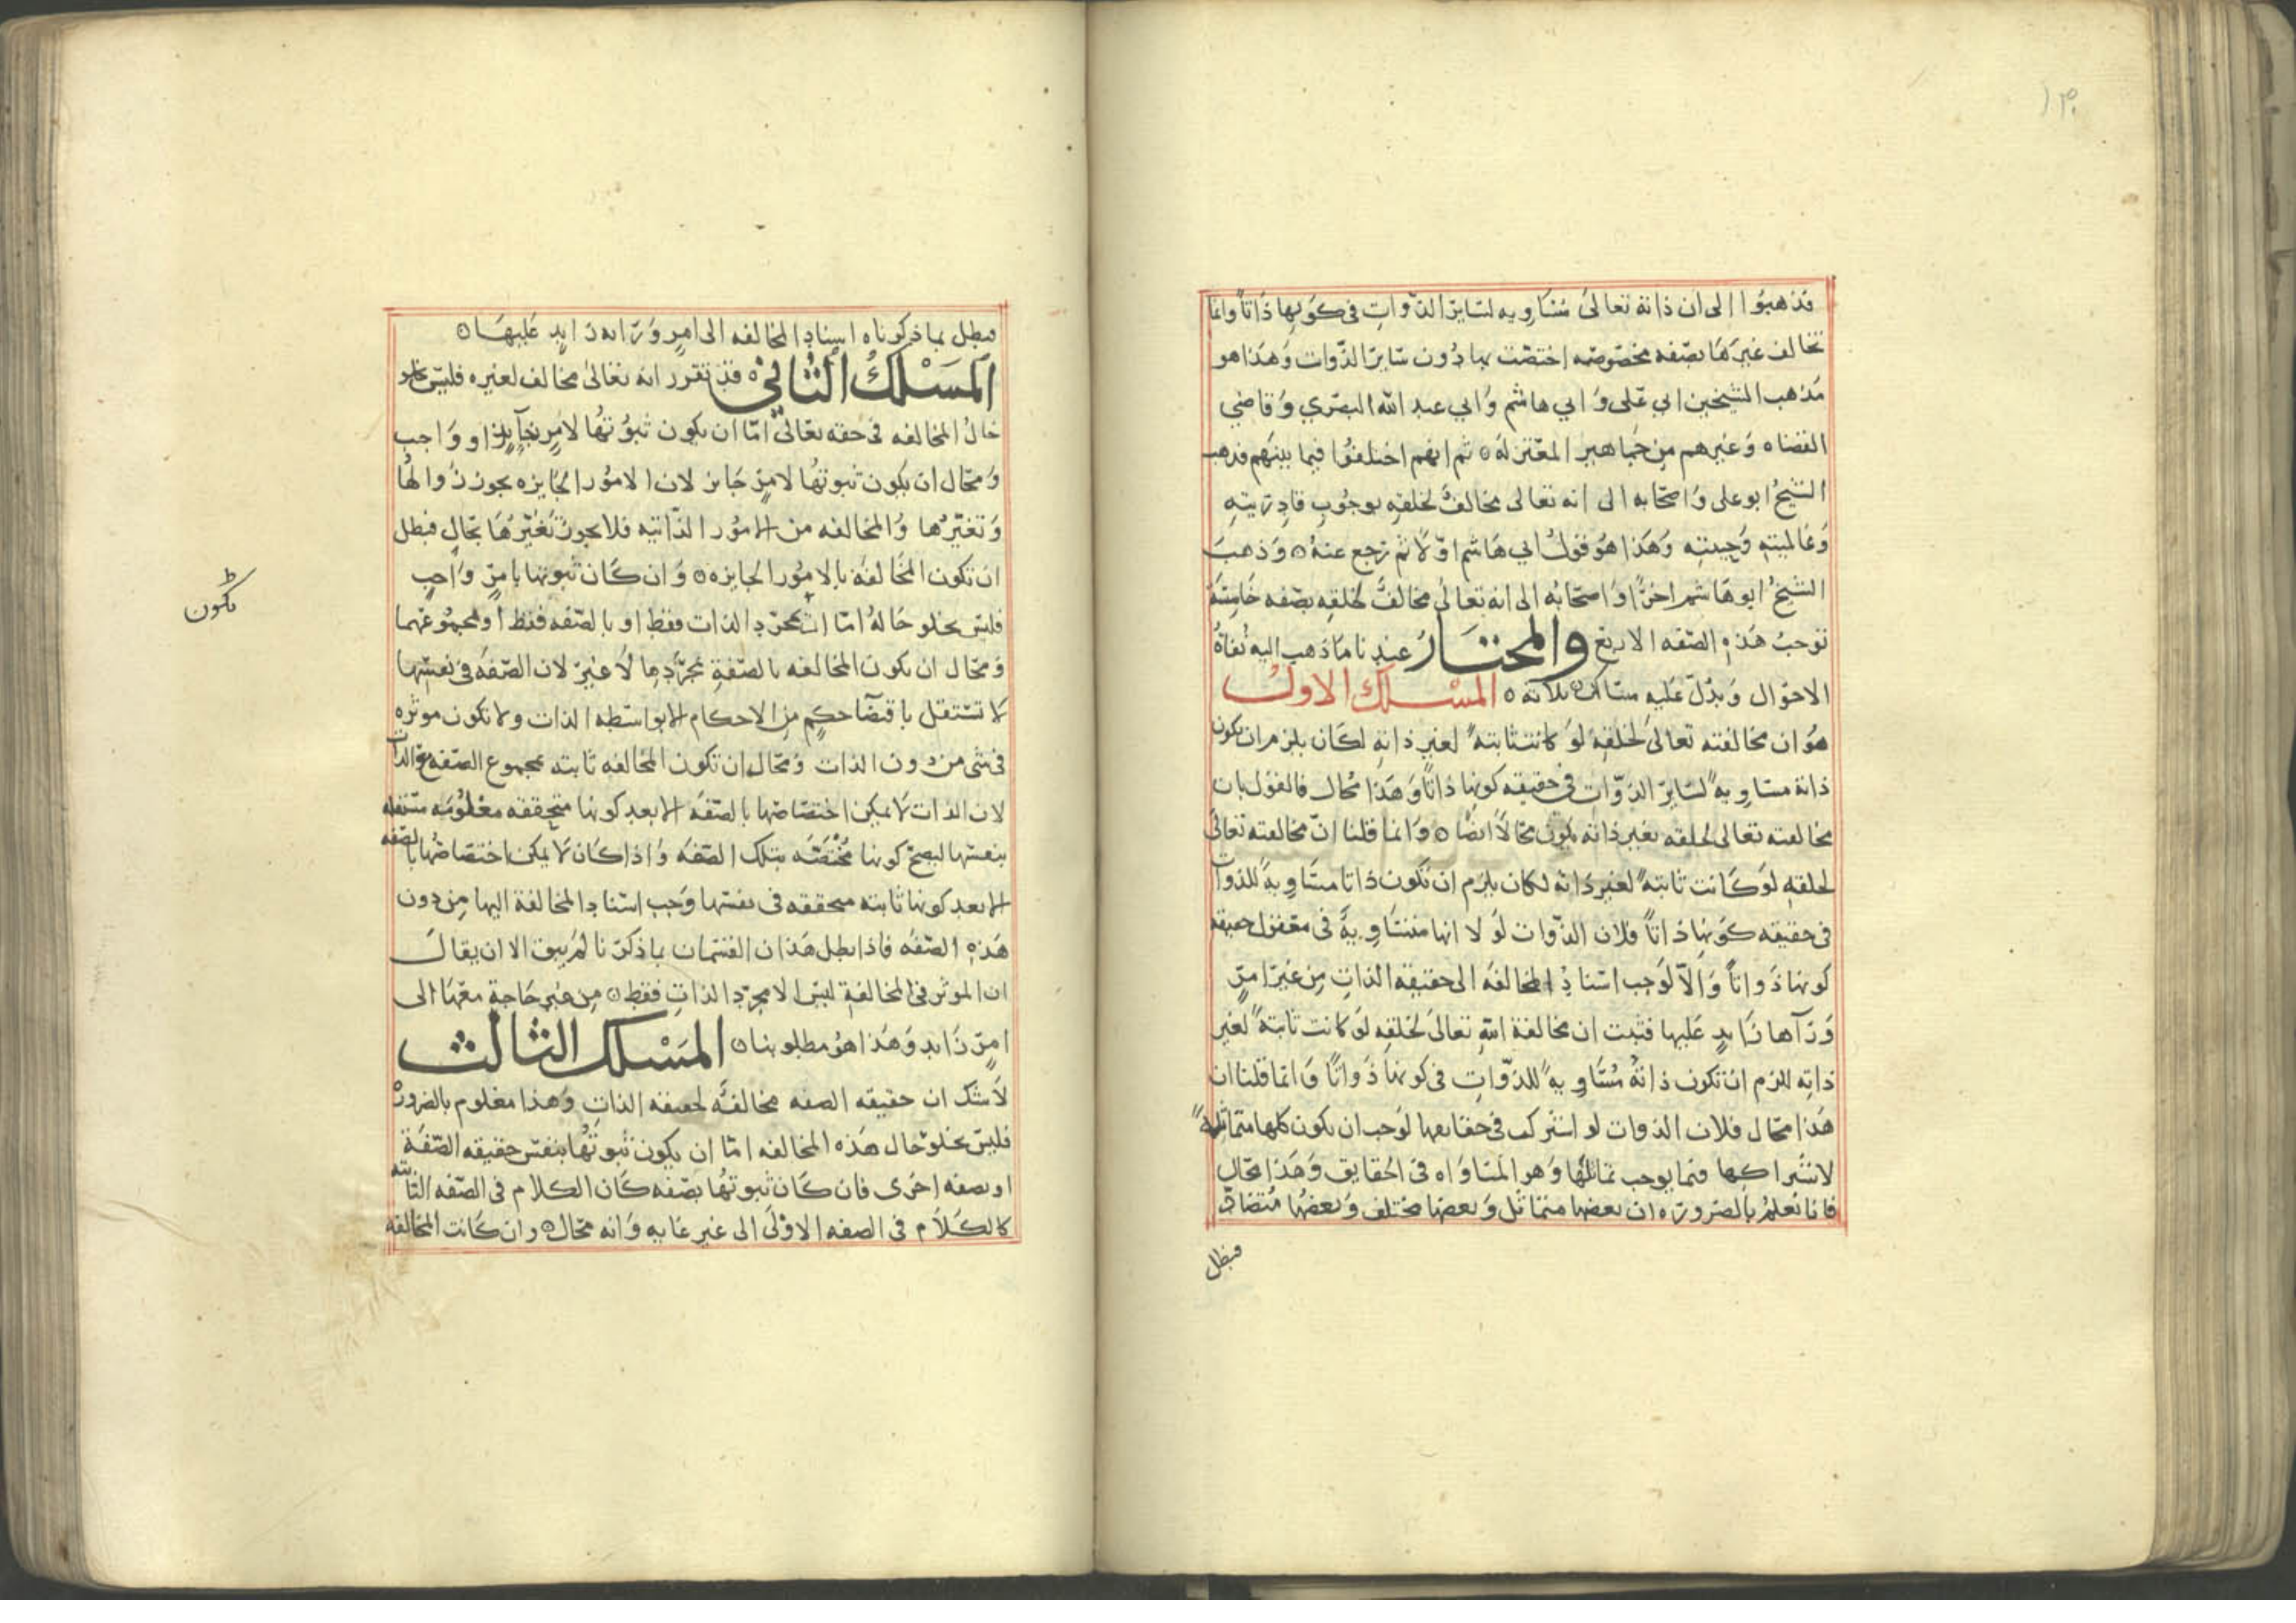 ١٣٠
قد ذهبوا الى ان ذاته تعالىٰ مُسَاويه لسَايرَ الذوات في كونها ذاتاً وانما
تخالف غيرَهَا بصّفه مخصوصه اختصّت بها دُون سَايرَ الذّوات وَهَذا هو
مَذهب الشيخين ابي عَلى وَ ابي هاشم وَابي عبد الله البصْري وَقاضي
القضاه وَغيرهم مِن جَماهير المعْتزله ۞ ثم انهم اختلفوُا فيما بينَهم فذهب
الشيخُ ابو على وَاصحّابه الى انه تعالى مخالفٌ لخلقِه بوجُوب قادِريتِهِ
وَعَالميتهِ وَحييتهِ وَهَذا هُوَ قولُ ابي هَاشم اوّلاً ثم رَجع عنهُ ۞ وَذهبَ
الشيخُ ابو هَاشم اخرًا وَاصحّابُه الى انه تعَالىٰ مخالفٌ لخلقِه بصّفه خَامِسَة
توَجبُ هَذهِ الصّفه الاربع وَالمختَارُ عند نا مَا ذهب اليه نُفاةُ
الاحوَال وَيدُلّ عَليه مسَالك ثلاثه ۞ المسْلك الاولُ
هُوَ ان مخالفته تعالىٰ لخلقِهِ لوَ كانت ثابتهً لغير ذاتهِ لكَان يلزم ان تكون
ذاتهُ مسَاويهً لسَايرَ الذوّات في حقيقه كونها ذاتاً وَهَذا محَال فالقوْل بان
مخالفته تعالى لخلقه بغير ذاته يكون محَالاً ايضًا ۞ وَانما قلنا انّ مخالفته تعالىٰ
لخلقهِ لوَ كَانت ثابتهً لغير ذاته لكان يلزم ان تكون ذاتا مسَاويهً للذوات
في حقيقه كوَنهَا ذاتاً فلان الذّوات لوَ لا انها متسَاويهً في معقول حقيقه
كونها ذَواتاً وَالاّ لوَجب اسْنادُ المخالفَه الى حقيقه الذاتِ مِن غيَر امرٍ
وَرَآهَا زَايدٍ عَليها فثبت ان مخالفة اللهِ تعالىٰ لخلقِهِ لوَ كانت ثابتهً لغير
ذاتِه للزم ان تكون ذاتهُ مُسَاويهً للذّوَاتِ في كونها ذَواتًا وَانما قلنا ان
هَذا محَال فلان الذوات لو اشتركت في حقايقها لوَجب ان تكون كلها متماثلهً
لاشترَاكها فيما يوجب تماثلهُا وَهو المسَاوَاه في الحقايق وَهَذا محَال
فانا نَعلمُ بالضرورَه ان بعضها متماثل وَبعضها مختلف وَبعضُها مُتضَادّ
فبطل
فبطل بما ذكرناه اسناد المخالفه الى امرٍ وَرَاه زَايدٍ عَليهَا ۞
المَسْلكُ الثَاني ۞ قد تقرر انه تعالىٰ مخالف لغيره فليسَ يخلو
حَالُ المخالفه في حقه تعَالىٰ امّا ان يكون ثبوُتهُا لامرٍ جَآيزٍ او وَاجب
وَمحَال ان يكون ثبوتهُا لامرٍ جَايز لان الامُورَ الجَايزه يجوز زوَالهُا
وَتغيّرُها وَالمخالفه من الامُور الذّاتيه فلا يجوز تَغيّرُهَا بحَالٍ فبطل
ان تكون المخَالفَه بالامُور الجايزه ۞ وَان كَان ثبوتها بامرٍ وَاجبٍ
تكون
فليسَ يخلو حَالهُ امّا ان بمجرّدِ الذات فقط او بالصّفه فقط او لمجموُعهما
وَمحَال ان تكون المخالفه بالصّفةِ بمجرّدِها لاَ غيَر لان الصّفَه في نفسها
لا تسْتقل باقتضَآ حكمٍ مِن الاحكام الا بواسطه الذات ولا تكون موثره
في شى من دون الذات وَمحَال ان تكون المخالفه ثابته بمجموع الصّفه وَالذات
لان الذات لا يمكن اختصَاصُها بالصّفَه الا بعد كونها متحققه معْلومَه مستقله
بنفسها ليصحّ كونها مُخْتصَّه بتلك الصّفَه وَاذا كَان لاَ يمكن اختصَاصُها بالصّفه
الا بعد كونها ثابته متحققه في نفسها وَجب اسْناد المخالفة اليها مِن دون
هَذهِ الصّفَه فاذا بطل هَذان القسْمان بما ذكرْنا لم يبق الا ان يقالَ
ان الموثر في المخالفةِ ليسَ الا مجرّد الذاتِ فقط ۞ مِن غير حَاجةٍ معَهَا الى
امرٍ زَايد وَهَذا هوَ مطلوبنا ۞ المَسْلك الثالث
لاَ شك ان حقيقه الصفه مخالفَهٌ لحقيقه الذاتِ وَهذا معْلوم بالضرورَه
فليسَ يخلو حَال هَذه المخالفه امّا ان يكون ثبوتهُا بنفس حقيقه الصّفَة
او بصفه اخرَى فان كَان ثبوتهُا بصّفه كَان الكلام في الصّفه الثانيه
كالكَلاَم في الصفه الاوْلَى الى غير غايه وَانه محَال ۞ وان كَانت المخالفه